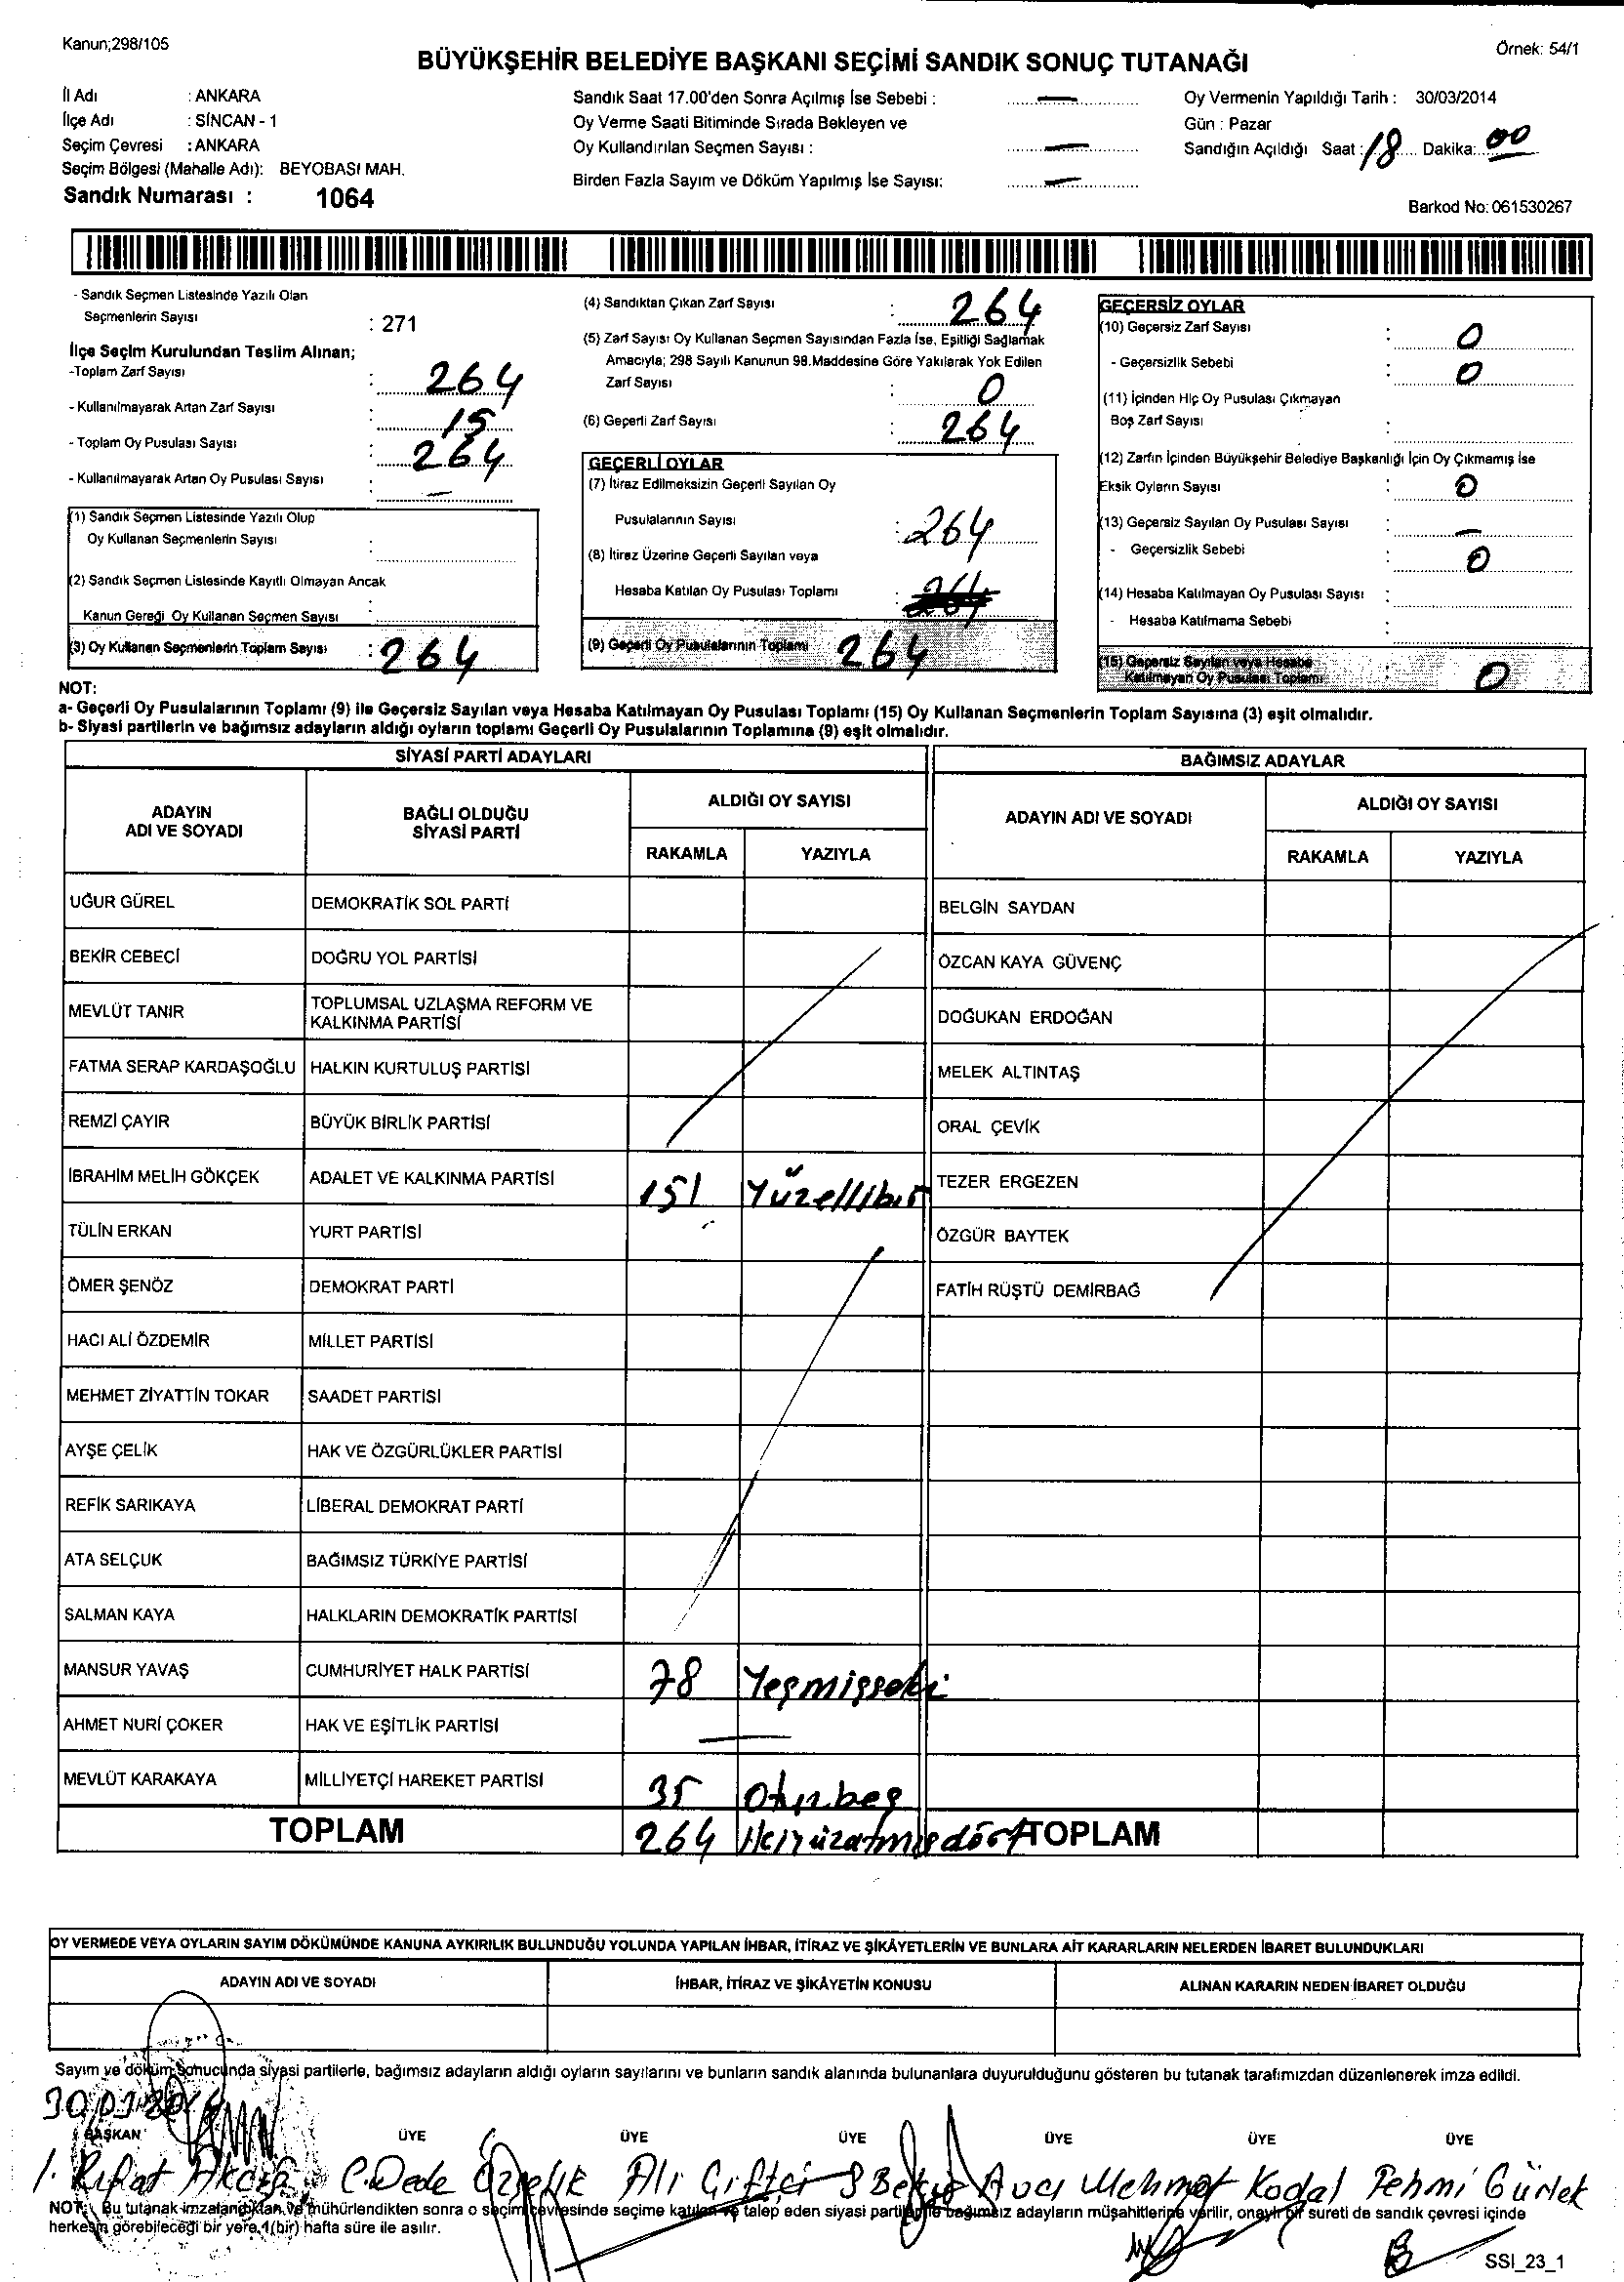 Kanun;298/105
Örnek: 54/1
BÜYÜKŞEHİR BELEDİYE BAŞKANI SEÇİMİ SANDIK SONUÇ TUTANAĞI
İl Adı : ANKARA
İlçe Adı : SİNCAN - 1
Seçim Çevresi : ANKARA
Seçim Bölgesi (Mahalle Adı): BEYOBASI MAH.
Sandık Numarası : 1064
Sandık Saat 17.00'den Sonra Açılmış İse Sebebi : —
Oy Verme Saati Bitiminde Sırada Bekleyen ve
Oy Kullandırılan Seçmen Sayısı : —
Birden Fazla Sayım ve Döküm Yapılmış İse Sayısı: —
Oy Vermenin Yapıldığı Tarih : 30/03/2014
Gün : Pazar
Sandığın Açıldığı Saat : 18 Dakika: 00
Barkod No: 061530267
- Sandık Seçmen Listesinde Yazılı Olan
Seçmenlerin Sayısı : 271
İlçe Seçim Kurulundan Teslim Alınan;
-Toplam Zarf Sayısı : 264
- Kullanılmayarak Artan Zarf Sayısı : 15
- Toplam Oy Pusulası Sayısı : 264
- Kullanılmayarak Artan Oy Pusulası Sayısı : —
(1) Sandık Seçmen Listesinde Yazılı Olup
Oy Kullanan Seçmenlerin Sayısı :
(2) Sandık Seçmen Listesinde Kayıtlı Olmayan Ancak
Kanun Gereği Oy Kullanan Seçmen Sayısı :
(3) Oy Kullanan Seçmenlerin Toplam Sayısı : 264
(4) Sandıktan Çıkan Zarf Sayısı : 264
(5) Zarf Sayısı Oy Kullanan Seçmen Sayısından Fazla İse, Eşitliği Sağlamak
Amacıyla; 298 Sayılı Kanunun 98.Maddesine Göre Yakılarak Yok Edilen
Zarf Sayısı : 0
(6) Geçerli Zarf Sayısı : 264
GEÇERLİ OYLAR
(7) İtiraz Edilmeksizin Geçerli Sayılan Oy
Pusulalarının Sayısı : 264
(8) İtiraz Üzerine Geçerli Sayılan veya
Hesaba Katılan Oy Pusulası Toplamı : 264
(9) Geçerli Oy Pusulalarının Toplamı 264
GEÇERSİZ OYLAR
(10) Geçersiz Zarf Sayısı : 0
- Geçersizlik Sebebi : 0
(11) İçinden Hiç Oy Pusulası Çıkmayan
Boş Zarf Sayısı :
(12) Zarfın İçinden Büyükşehir Belediye Başkanlığı İçin Oy Çıkmamış İse
Eksik Oyların Sayısı : 0
(13) Geçersiz Sayılan Oy Pusulası Sayısı : —
- Geçersizlik Sebebi : 0
(14) Hesaba Katılmayan Oy Pusulası Sayısı :
- Hesaba Katılmama Sebebi :
(15) Geçersiz Sayılan veya Hesaba
Katılmayan Oy Pusulası Toplamı : 0
NOT:
a- Geçerli Oy Pusulalarının Toplamı (9) ile Geçersiz Sayılan veya Hesaba Katılmayan Oy Pusulası Toplamı (15) Oy Kullanan Seçmenlerin Toplam Sayısına (3) eşit olmalıdır.
b- Siyasi partilerin ve bağımsız adayların aldığı oyların toplamı Geçerli Oy Pusulalarının Toplamına (9) eşit olmalıdır.
SİYASİ PARTİ ADAYLARI
BAĞIMSIZ ADAYLAR
ADAYIN
ADI VE SOYADI
BAĞLI OLDUĞU
SİYASİ PARTİ
ALDIĞI OY SAYISI
RAKAMLA YAZIYLA
ADAYIN ADI VE SOYADI
ALDIĞI OY SAYISI
RAKAMLA YAZIYLA
UĞUR GÜREL DEMOKRATİK SOL PARTİ
BELGİN SAYDAN
BEKİR CEBECİ DOĞRU YOL PARTİSİ
ÖZCAN KAYA GÜVENÇ
MEVLÜT TANIR TOPLUMSAL UZLAŞMA REFORM VE
KALKINMA PARTİSİ
DOĞUKAN ERDOĞAN
FATMA SERAP KARDAŞOĞLU HALKIN KURTULUŞ PARTİSİ
MELEK ALTINTAŞ
REMZİ ÇAYIR BÜYÜK BİRLİK PARTİSİ
ORAL ÇEVİK
İBRAHİM MELİH GÖKÇEK ADALET VE KALKINMA PARTİSİ 151 Yüzellibir
TEZER ERGEZEN
TÜLİN ERKAN YURT PARTİSİ
ÖZGÜR BAYTEK
ÖMER ŞENÖZ DEMOKRAT PARTİ
FATİH RÜŞTÜ DEMİRBAĞ
HACI ALİ ÖZDEMİR MİLLET PARTİSİ
MEHMET ZİYATTİN TOKAR SAADET PARTİSİ
AYŞE ÇELİK HAK VE ÖZGÜRLÜKLER PARTİSİ
REFİK SARIKAYA LİBERAL DEMOKRAT PARTİ
ATA SELÇUK BAĞIMSIZ TÜRKİYE PARTİSİ
SALMAN KAYA HALKLARIN DEMOKRATİK PARTİSİ
MANSUR YAVAŞ CUMHURİYET HALK PARTİSİ 78
AHMET NURİ ÇOKER HAK VE EŞİTLİK PARTİSİ —
MEVLÜT KARAKAYA MİLLİYETÇİ HAREKET PARTİSİ 35 Otuzbeş
TOPLAM 264 İkiyüzatmışdört TOPLAM
OY VERMEDE VEYA OYLARIN SAYIM DÖKÜMÜNDE KANUNA AYKIRILIK BULUNDUĞU YOLUNDA YAPILAN İHBAR, İTİRAZ VE ŞİKÂYETLERİN VE BUNLARA AİT KARARLARIN NELERDEN İBARET BULUNDUKLARI
ADAYIN ADI VE SOYADI İHBAR, İTİRAZ VE ŞİKÂYETİN KONUSU ALINAN KARARIN NEDEN İBARET OLDUĞU
Sayım ve döküm sonucunda siyasi partilerle, bağımsız adayların aldığı oyların sayılarını ve bunların sandık alanında bulunanlara duyurulduğunu gösteren bu tutanak tarafımızdan düzenlenerek imza edildi.
BAŞKAN ÜYE ÜYE ÜYE ÜYE ÜYE ÜYE
Rıfat C.Dede Özçelik Ali Çiftçi Avcı Mehmet Kodal Fehmi Gürlek
NOT: Bu tutanak imzalandıktan ve mühürlendikten sonra o seçim çevresinde seçime katılan ve talep eden siyasi partiler ile bağımsız adayların müşahitlerine verilir, onaylı bir sureti de sandık çevresi içinde
herkesin görebileceği bir yere 1(bir) hafta süre ile asılır.
SSI_23_1